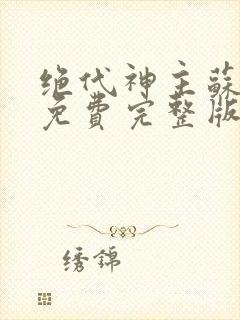 绝代神主蘇
免費完整版
绣錦